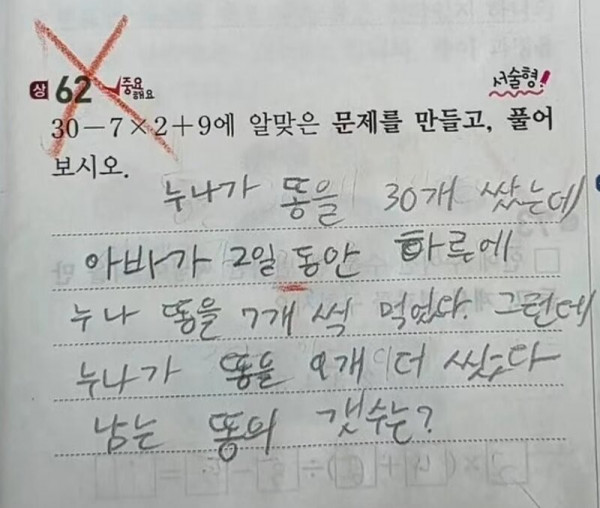 상 62 중요해요 서술형!
30－7×2＋9에 알맞은 문제를 만들고, 풀어
보시오.
누나가 똥을 30개 쌌는데
아빠가 2일 동안 하루에
누나 똥을 7개 씩 먹었다. 그런데
누나가 똥을 9개 더 쌌다
남는 똥의 갯수는?